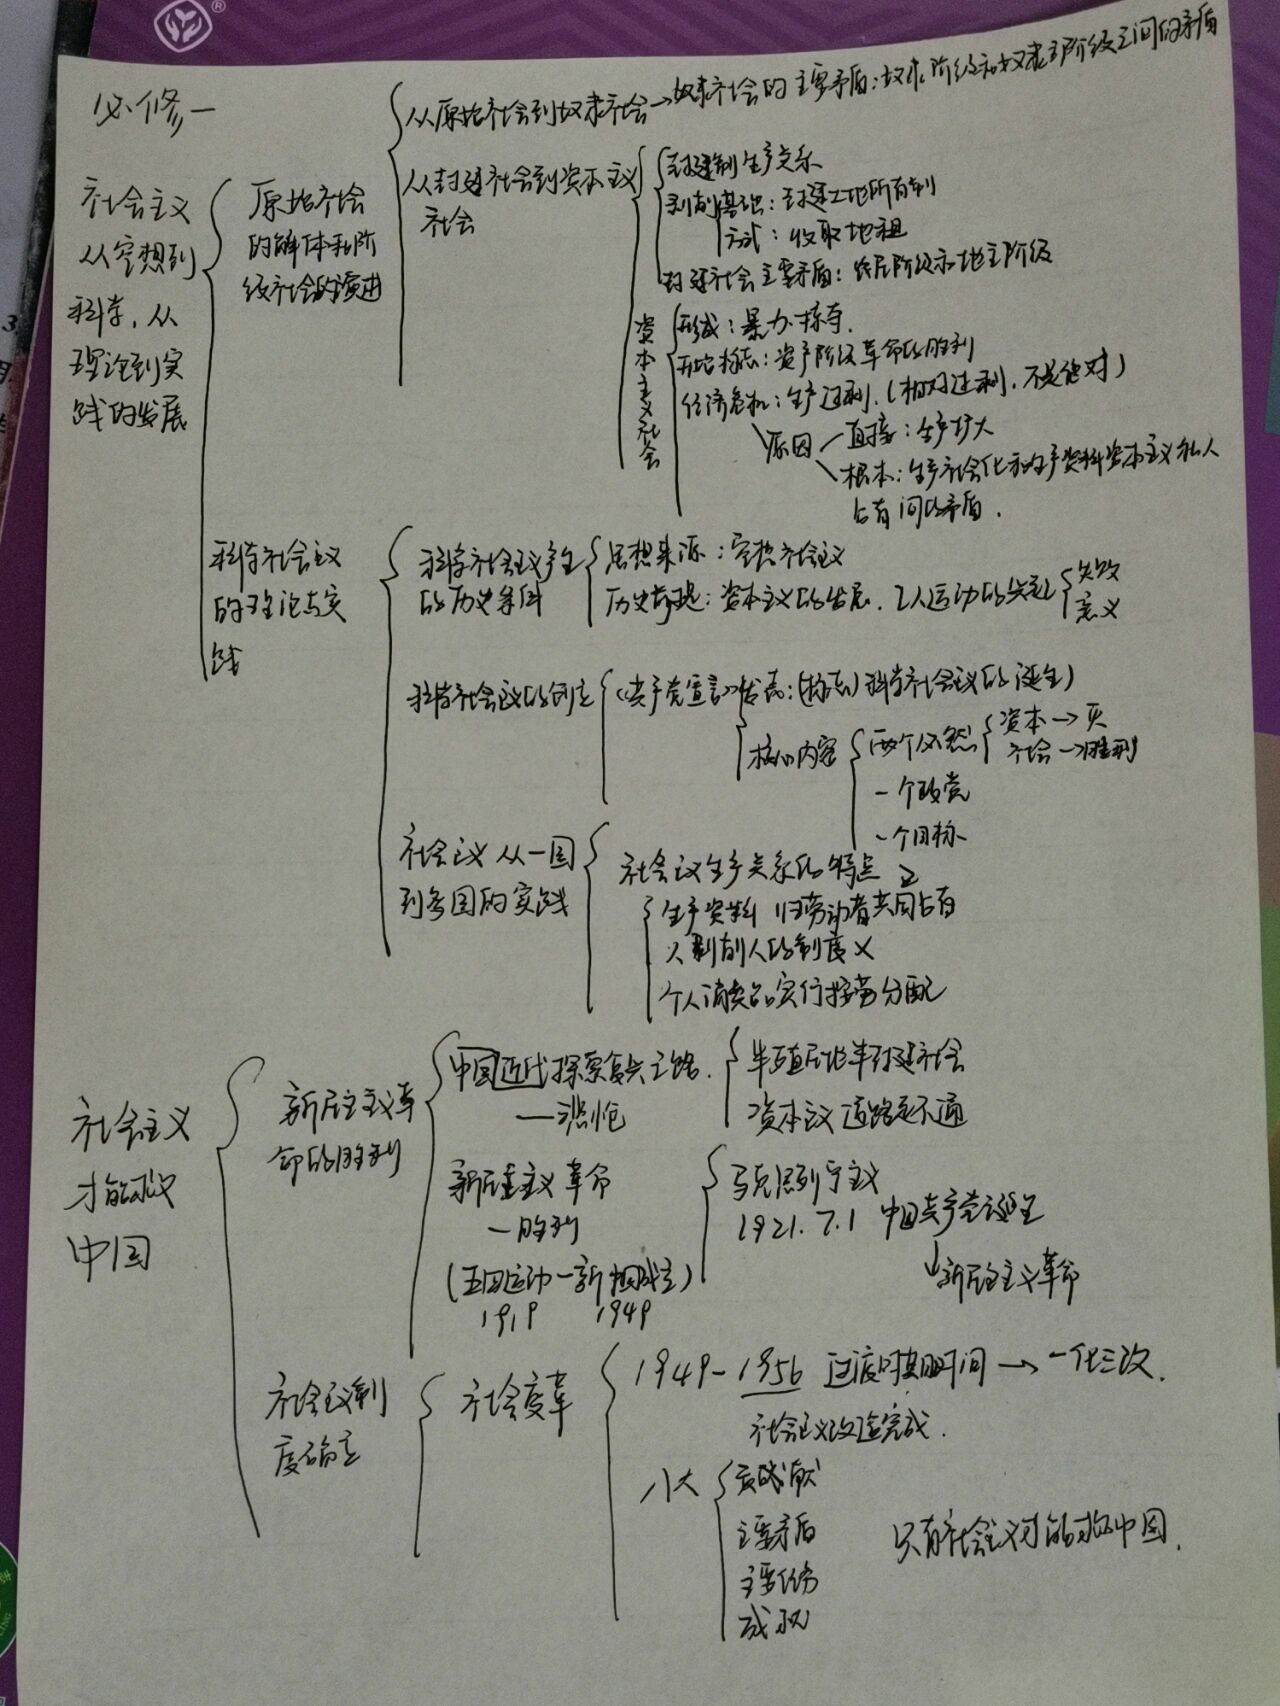 必修一
从原始社会到奴隶社会→奴隶社会的主要矛盾:奴隶阶级和奴隶主阶级之间的矛盾
社会主义
从空想到
科学,从
理论到实
践的发展
原始社会
的解体和阶
级社会的演进
从封建社会到资本主义
社会
封建制生产关系
剥削基础:封建土地所有制
方式:收取地租
封建社会主要矛盾:农民阶级和地主阶级
资本主义社会
形成:暴力掠夺.
开始标志:资产阶级革命的胜利
经济危机:生产过剩.(相对过剩.不是绝对)
原因
直接:生产扩大
根本:生产社会化和生产资料资本主义私人
占有间的矛盾.
科学社会主义
的理论与实
践
科学社会主义产生
的历史条件
思想来源:空想社会主义
历史前提:资本主义的发展.工人运动的兴起
失败
意义
科学社会主义的创立
《共产党宣言》发表:(标志)科学社会主义的诞生)
核心内容
两个必然
资本→灭
社会→胜利
一个政党
一个目标
社会主义从一国
到多国的实践
社会主义生产关系的特点
生产资料归劳动者共同占有
人剥削人的制度×
个人消费品实行按劳分配
社会主义
才能救
中国
新民主主义革
命的胜利
中国近代探索复兴之路.
——悲怆
半殖民地半封建社会
资本主义道路走不通
新民主主义革命
—胜利
(五四运动—新中国成立)
1919 1949
马克思列宁主义
1921.7.1 中国共产党诞生
↓新民主主义革命
社会主义制
度确立
社会变革
1949-1956 过渡时期时间→一化三改.
社会主义改造完成.
八大
贡献
主要矛盾
主要任务
成就
只有社会主义才能救中国.